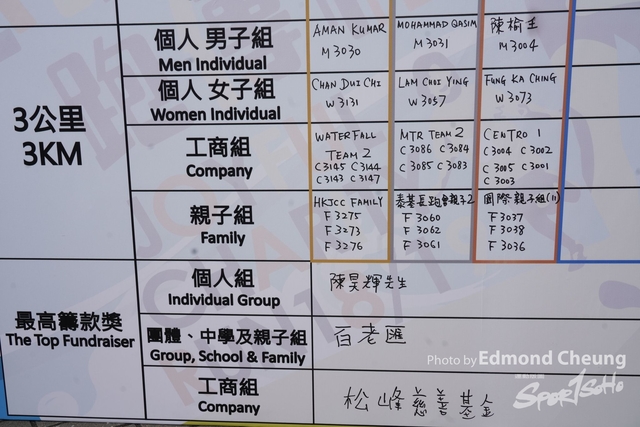 3公里
3KM
個人 男子組
Men Individual
AMAN KUMAR
M3030
MOHAMMAD QASIM
M3031
陳榆王
M3004
個人 女子組
Women Individual
CHAN DUI CHI
W3131
LAM CHOI YING
W3057
FUNG KA CHING
W3073
工商組
Company
WATERFALL
TEAM 2
C3145 C3144
C3143 C3147
MTR TEAM 2
C3086 C3084
C3085 C3083
CENTRO 1
C3004 C3002
C3005 C3001
C3003
親子組
Family
HKJCC FAMILY
F3275
F3273
F3276
泰基長跑會親子2
F3060
F3062
F3061
國際親子組(11)
F3037
F3038
F3036
最高籌款獎
The Top Fundraiser
個人組
Individual Group
陳昊輝先生
團體、中學及親子組
Group, School & Family
百老匯
工商組
Company
松峰慈善基金
Photo by Edmond Cheung
SPORTSOHO